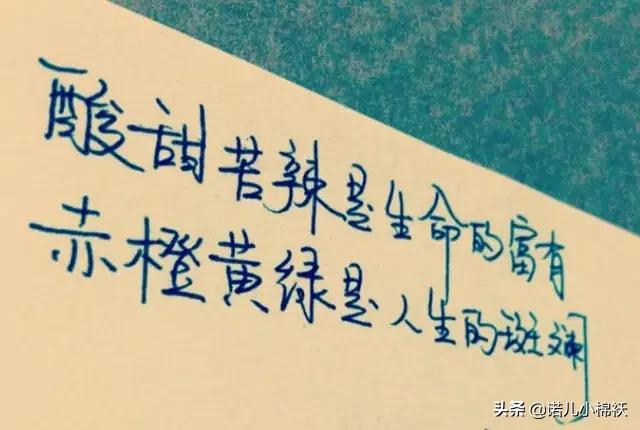 酸甜苦辣是生命的富有
赤橙黄绿是人生的斑斓
头条 @诺儿小棉袄